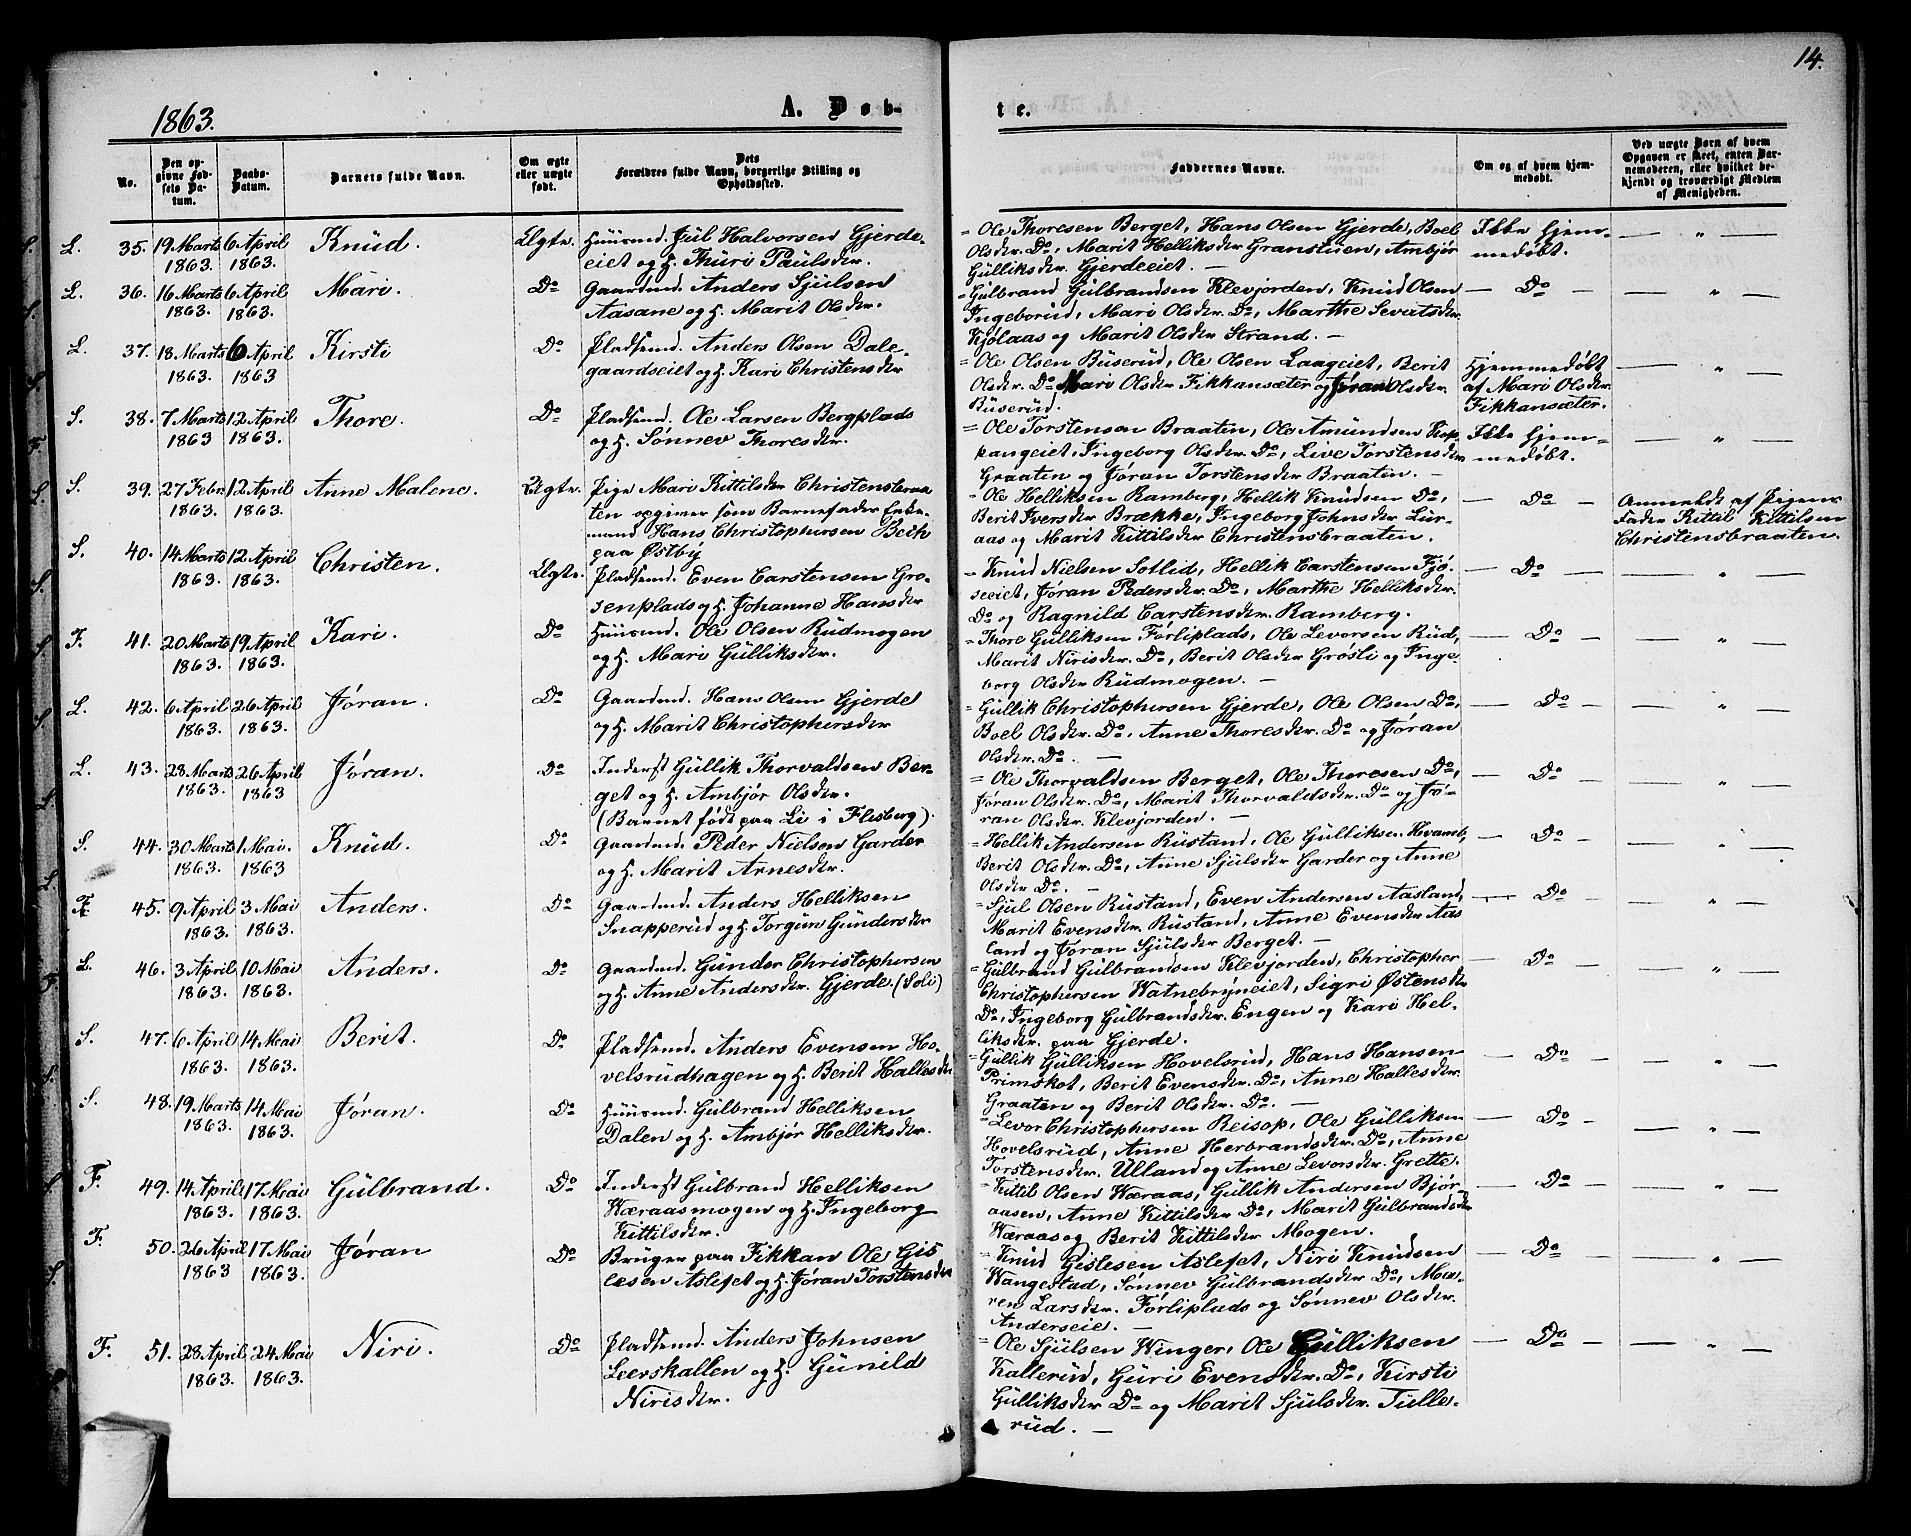 14.
1863. A. Døb-
te.
No.
Den op-
givne Fød-
sels Da-
tum.
Daabs-
Datum.
Barnets fulde Navn.
Om ægte
eller uægte
født.
Dets
Forældres fulde Navn, borgerlige Stilling og
Opholdssted.
Faddernes Navne.
Om og af hvem hjem-
medøbt.
Ved uægte Børn af hvem
Opgaven er skeet, enten Bar-
nemoderen, eller hvilket be-
kjendt og troværdigt Medlem
af Menigheden.
L. 35. 19 Marts 6 April Knud. Ægte. Huusmd. Jul Halvorsen Gjerde-
1863. 1863. eiet og H. Thuri Paulsdtr.
= Ole Thoresen Berget, Hans Olsen Gjerde, Boel Ikke hjem- — " —
Olsdtr. Do, Marit Helliksdtr Granstuen, Ambjør medøbt.
Gulliksdtr. Gjerdeeiet. —
L. 36. 16 Marts 6 April Mari. Do Gaardmd. Anders Sjulsen
1863. 1863. Aasane og H. Marit Olsdtr.
= Gulbrand Gulbrandsen Klevjorden, Knud Olsen — Do — — " —
Ingeborud, Mari Olsdtr. Do, Marthe Sevatsdtr.
Kjølaas og Marit Olsdtr Strand. —
L. 37. 18 Marts 6 April Kirsti Do Pladsemd. Anders Olsen Dale-
1863. 1863 gaardseiet og H. Kari Christensdtr
= Ole Olsen Buserud, Ole Olsen Laageiet, Berit Hjemmedøbt — " —
Olsdtr. Do Mari Olsdtr Fikkansæter og Jøran Olsdtr af Mari Olsdtr.
Buserud. Fikkansæter.
S. 38. 7 Marts 12 April Thore. Do Pladsemd. Ole Larsen Bergplads
1863 1863. og H. Sønnev Thoresdtr.
= Ole Torstensen Braaten, Ole Amundsen Kop- Ikke hjem- — " —
pangeiet, Ingeborg Olsdtr. Do, Live Torstensdtr medøbt.
Graaten og Jøran Torstensdtr Braaten. —
S. 39. 27 Febr. 12 April Anne Malene. Uægte. Pige Mari Kittilsdtr Christensbraa
1863. 1863. ten opgiver som Barnefader Enke-
mand Hans Christophersen Beth
paa Østby
= Ole Helliksen Ramberg, Hellik Knudsen Do, — Do — Anmeldt af Pigens
Berit Iversdtr Brække, Ingeborg Johnsdtr Lur- Fader Kittil Kittilsen
aas og Marit Kittilsdtr Christensbraaten. Christensbraaten.
S. 40. 14 Marts 12 April Christen. Ægte. Pladsemd. Even Carstensen Gro-
1863. 1863. senplads og H. Johanne Hansdtr
= Knud Nielsen Sollid, Hellik Carstensen Fjø- — Do — — " —
seeiet, Jøran Pedersdtr. Do, Marthe Helliksdtr.
Do og Ragnild Carstensdtr. Ramberg.
F. 41. 20 Marts 19 April Kari. Do Huusmd. Ole Olsen Rudmogen
1863. 1863. og H. Mari Gulliksdtr.
= Thore Gulliksen Førliplads, Ole Levorsen Rud, — Do — — " —
Marit Nirisdtr. Do, Berit Olsdtr Grøsli og Inge-
borg Olsdtr Rudmogen. —
L. 42. 6 April 26 April Jøran. Do Gaardmd. Hans Olsen Gjerde
1863. 1863. og H. Marit Christophersdtr
= Gullik Christophersen Gjerde, Ole Olsen Do, — Do — — " —
Boel Olsdtr. Do, Anne Thoresdtr. Do og Jøran
Olsdtr. Do. —
L. 43. 28 Marts 26 April Jøran. Do Inderst Gullik Thorvaldsen Ber-
1863. 1863 get og H. Ambjør Olsdtr.
(Barnet født paa Li i Flesberg).
= Ole Thorvaldsen Berget, Ole Thoresen Do, — Do — — " —
Jøran Olsdtr. Do, Marit Thorvaldsdtr. Do og Jø-
ran Olsdtr. Klevjorden. —
S. 44. 30 Marts 1 Mai. Knud. Do Gaardmd. Peder Nielsen Garder
1863. 1863 og H. Marit Arnesdtr.
= Hellik Andersen Rustand, Ole Gulliksen Hvamb, — Do — — " —
Berit Olsdtr. Do, Anne Sjulsdtr Garder og Anne
Olsdtr Do. —
F. 45. 9 April 3 Mai Anders. Do Gaardmd. Anders Helliksen
1863. 1863. Snapperud og H. Torgun Gundersdtr
= Sjul Olsen Rustand, Even Andersen Aasland, — Do — — " —
Marit Evensdtr. Rustand, Anne Evensdtr Aas
land og Jøran Sjulsdtr Berget. —
L. 46. 3 April 10 Mai Anders. Do Gaardmd. Gunder Christophersen
1863. 1863. og H. Anne Andersdtr. Gjerde. (Soli)
= Gulbrand Gulbrandsen Klevjorden, Christopher — Do — — " —
Christophersen Watnebryneiet, Sigri Østensdtr
Do, Ingeborg Gulbrandsdtr. Engen og Kari Hel-
liksdtr. paa Gjerde.
S. 47. 6 April 14 Mai Berit. Do Pladsemd. Anders Evensen Ho-
1863. 1863. velsrudhagen og H. Berit Hallesdtr
= Gullik Gulliksen Hovelsrud, Hans Hansen — Do — — " —
Primskot, Berit Evensdtr. Do, Anne Hallesdtr.
Graaten og Berit Olsdtr. Do. —
S. 48. 19 Marts 14 Mai Jøran. Do Huusmd. Gulbrand Helliksen
1863. 1863. Dalen og H. Ambjør Helliksdtr.
= Levor Christophersen Reisop, Ole Gulliksen — Do — — " —
Hovelsrud, Anne Herbrandsdtr. Do, Anne
Torstensdtr. Ulland og Anne Levorsdtr. Grette.
F. 49. 14 April 17 Mai Gulbrand. Do Inderst Gulbrand Helliksen
1863. 1863. Wæraasmogen og H. Ingeborg
Kittilsdtr.
= Kittil Olsen Wæraas, Gullik Andersen Bjør- — Do — — " —
aasen, Anne Kittilsdtr Do, Marit Gulbrandsdtr
Wæraas og Berit Kittilsdtr Mogen.
F. 50. 26 April 17 Mai Jøran Do Bruger paa Fikkan Ole Gis
1863 1863. lesen Aslefet og H. Jøran Torstensdtr
= Knud Gislesen Aslefet, Niri Knudsen — Do — — " —
Wangestad, Sønnev Gulbrandsdtr Do, Ma-
ren Larsdtr. Førliplads og Sønnev Olsdtr.
Anderseie. —
F. 51. 28 April 24 Mai Niri. Do Pladsemd. Anders Johnsen
1863. 1863. Leerskallen og H. Gunild
Nirisdtr.
= Ole Sjulsen Winger, Ole Gulliksen — Do — — " —
Kallerud, Guri Evensdtr. Do, Kirsti
Gulliksdtr Do og Marit Sjulsdtr. Tulle-
rud. —